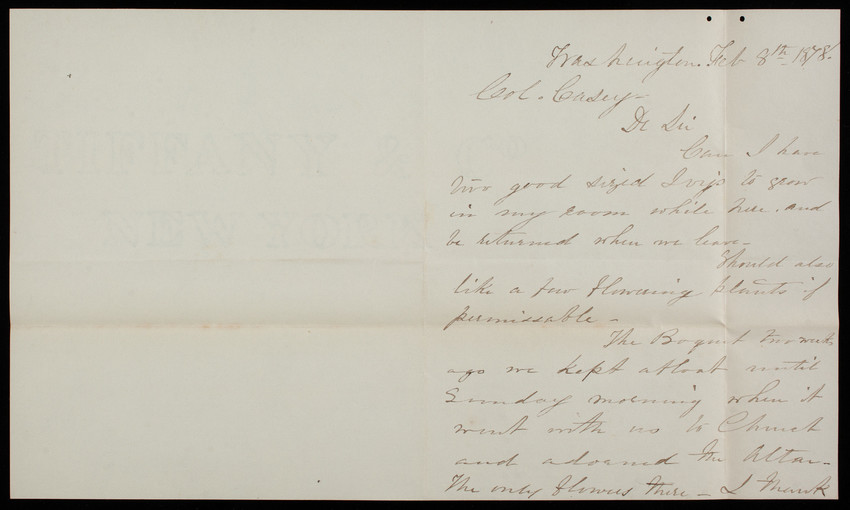 Washington. Feb 8th 1878.
Col. Casey-
Dr Sir
Can I have
two good sized Ivys to grow
in my room while here. and
be returned when we leave-
Should also
like a few flowering plants if
permissable-
The Boquet two weeks
ago we kept afloat until
Sunday morning when it
went with us to Church
and adorned the Altar-
The only flowers there - I thank